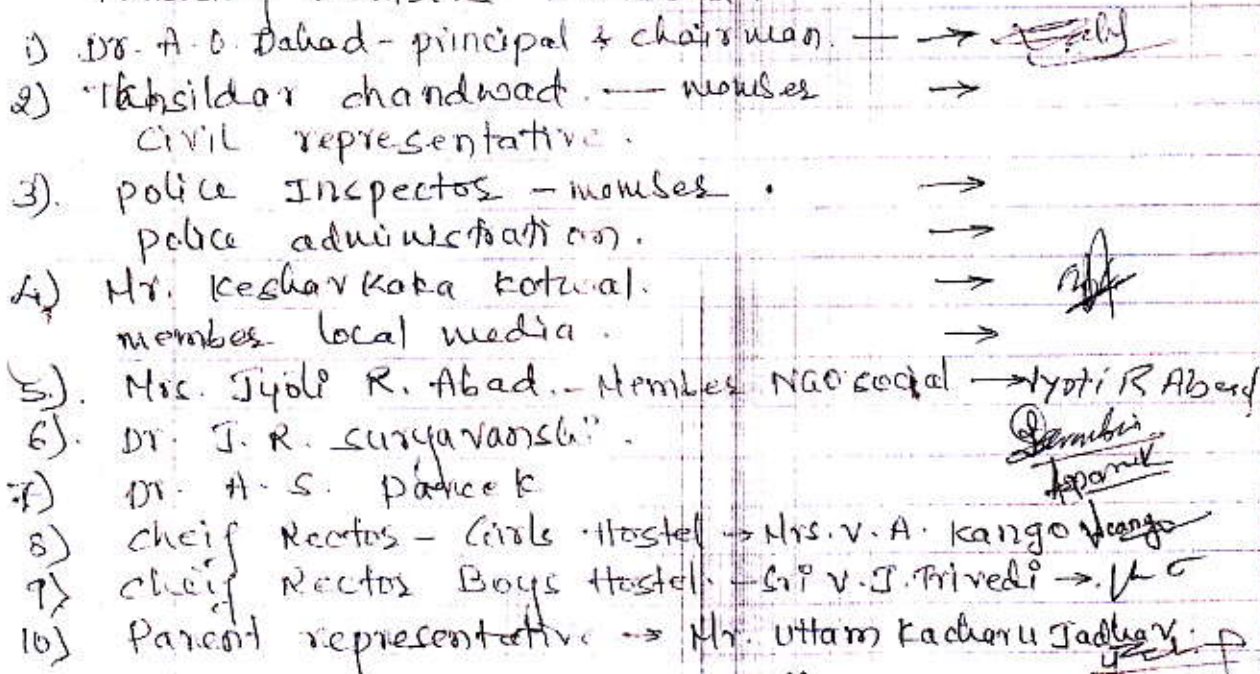 1) Dr. A. O. Dahad - principal & chairman. — →
2) Tahsildar chandwad. — member →
civil representative.
3). police Inspector - member. →
police administration. →
4) Mr. Keshav Kaka Kotwal. →
member local media. →
5). Mrs. Jyoti R. Abad. - Member NGO social → Jyoti R Abad
6). Dr. J. R. Suryavanshi.
7) Dr. A. S. Pareek
8) Cheif Rector - Girls Hostel → Mrs. V. A. Kango
9) Cheif Rector Boys Hostel. - Sri V. J. Trivedi →
10) Parent representative → Mr. Uttam Kacharu Jadhav.